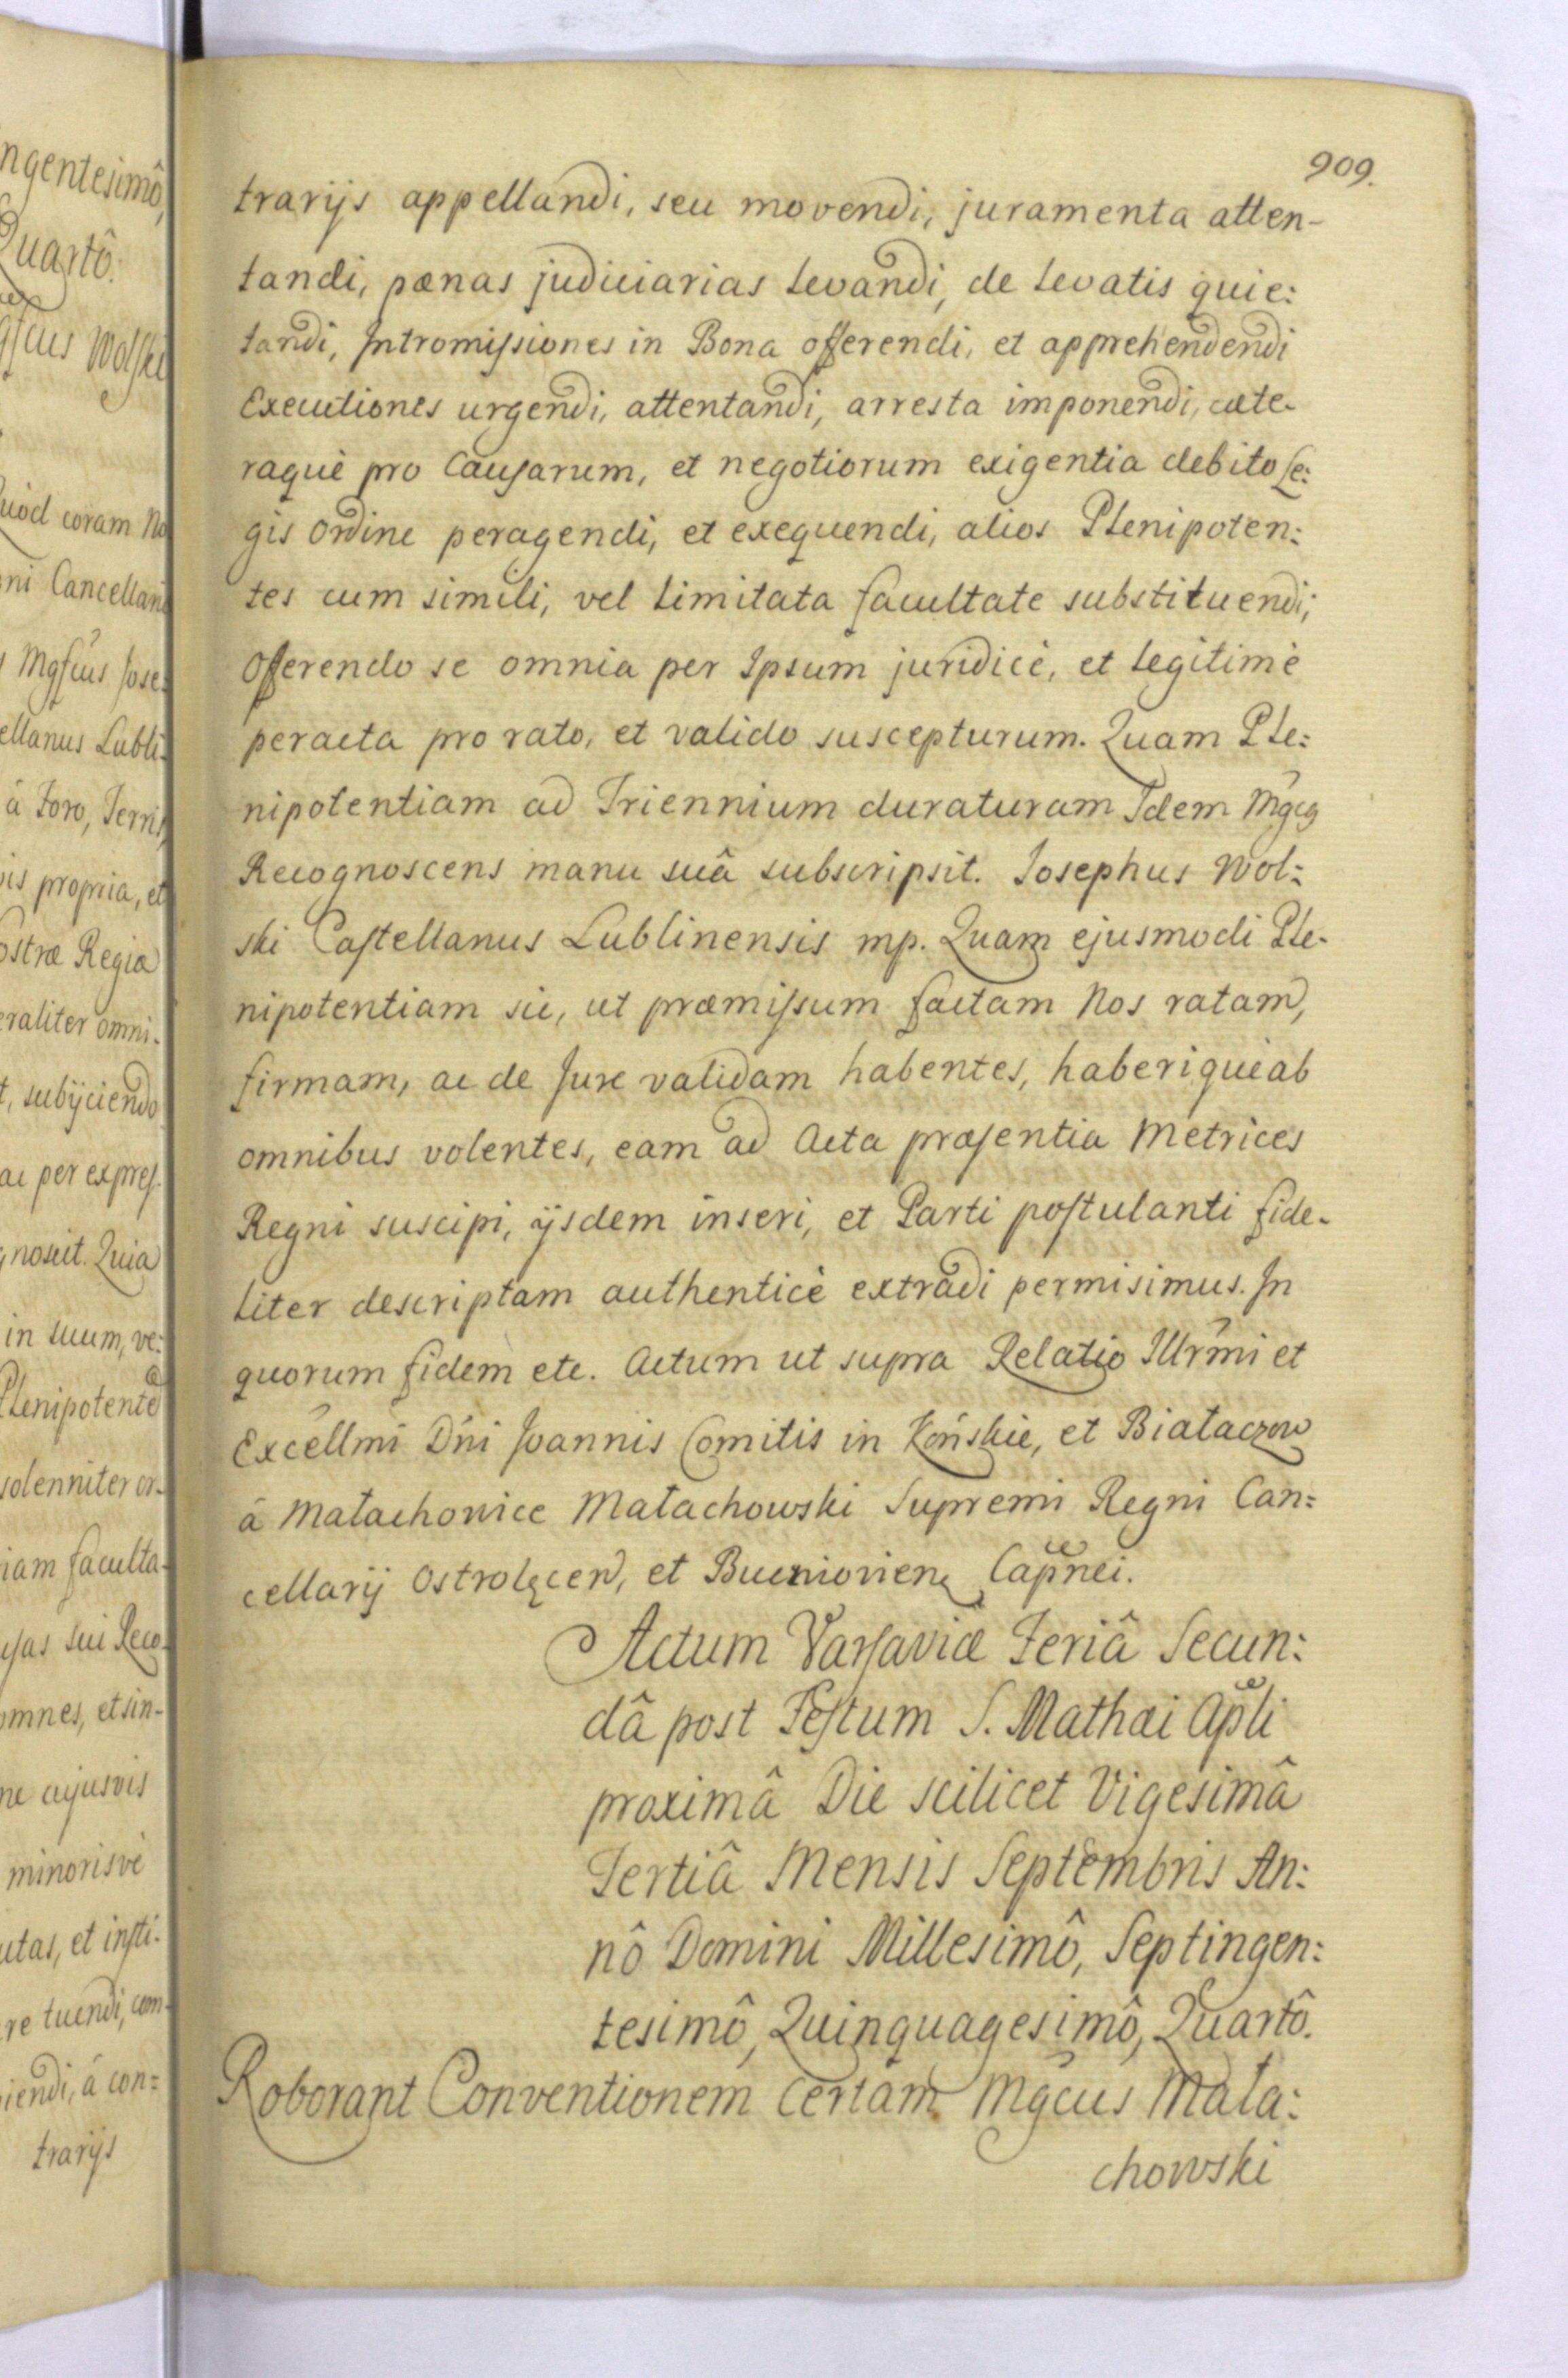 ngentesimô,
Quartô.
Wolski
coram No
ni Cancellari
Mgfcus Jose:
ellanus Lubli:
â Foro, Terris,
vis propria, et
ostræ Regiæ
eraliter omni-
t, subÿciendo
ac per expres-
gnoscit. Quia
in suum, ve:
Plenipotente
solenniter or-
iam faculta-
usas sui Reco-
omnes, et sin-
ne cujusvis
minorisvè
utas, et insti-
re tuendi, com-
iendi, â con=
trarÿs
909.
trarÿs appellandi, seu movendi, juramenta atten-
tandi, pænas judiciarias levandi, de levatis quie:
tandi, Intromissiones in Bona offerendi, et apprehendendi
Executiones urgendi, attentandi, arresta imponendi, cæte-
raquè pro Causarum, et negotiorum exigentia debito Le:
gis ordine peragendi, et exequendi, alios Plenipoten:
tes cum simili, vel limitata facultate substituendi;
Offerendo se omnia per Ipsum juridicè, et legitimè
peracta pro rato, et valido suscepturum. Quam Ple:
nipotentiam ad Triennium duraturam Idem Mgcg
Recognoscens manu suâ subscripsit. Josephus Wol:
ski Castellanus Lublinensis mp. Quam ejusmodi Ple-
nipotentiam sic, ut præmissum factam Nos ratam,
firmam, ac de Jure validam habentes, haberiquè ab
omnibus volentes, eam ad Acta præsentia Metrices
Regni suscipi, ÿsdem inseri, et Parti postulanti fide-
liter descriptam authenticè extradi permisimus. In
quorum fidem etc. Actum ut supra Relatio Illrmi et
Excellmi Dni Joannis Comitis in Końskie, et Białaczow
â Małachowice Małachowski Supremi Regni Can:
cellarÿ Ostrolęcen, et Capnei.
Actum Varsaviæ Feriâ Secun:
dâ post Festum S. Mathæi Apli
proximâ Die scilicet Vigesimâ
Tertiâ Mensis Septembris An:
nô Domini Millesimô, Septingen:
tesimô, Quinquagesimô, Quartô.
Roborant Conventionem certam Mgcus Mała:
chowski